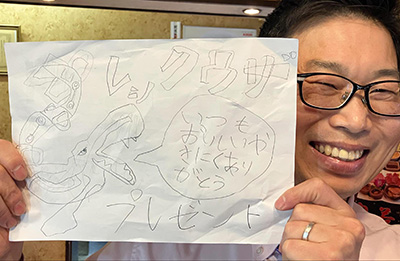 レックウザ
いつも
おいしいや
きにくあり
がとう
プレゼント